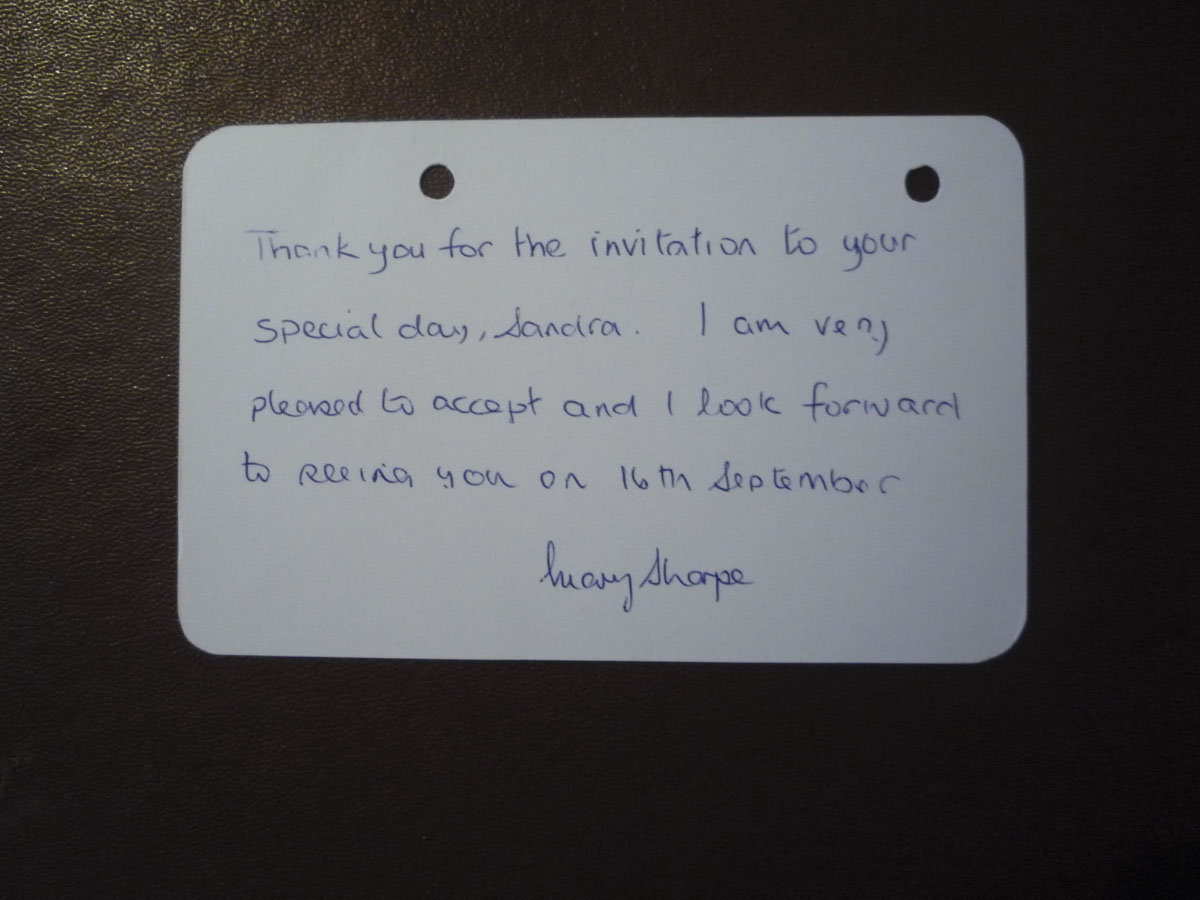 Thank you for the invitation to your
special day, Sandra. I am very
pleased to accept and I look forward
to seeing you on 16th September
Mary Sharpe